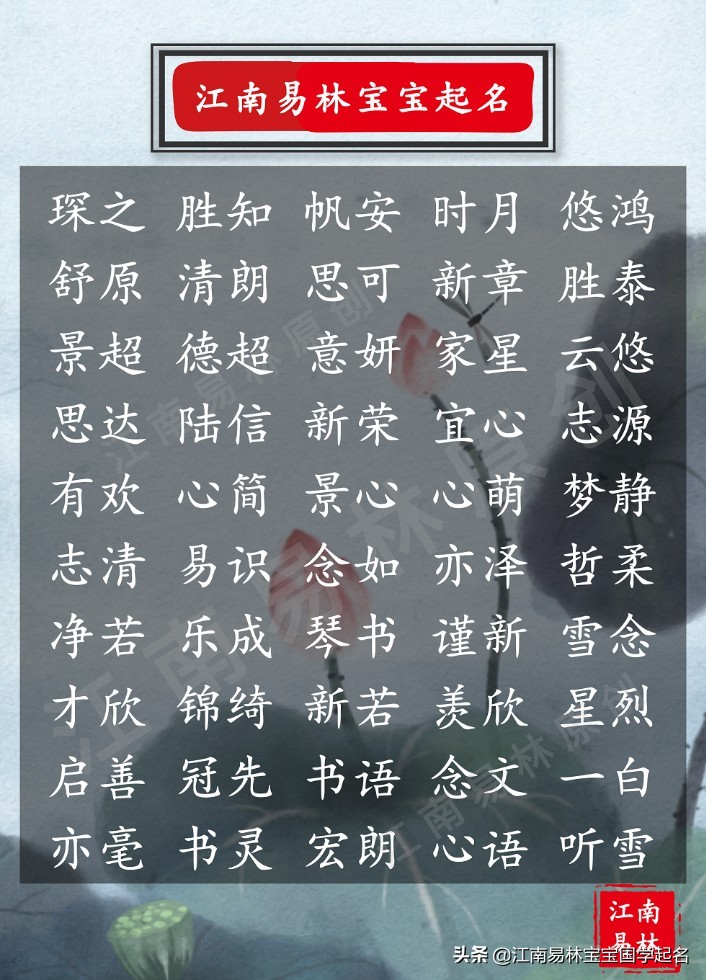 江南易林宝宝起名
琛之 胜知 帆安 时月 悠鸿
舒原 清朗 思可 新章 胜泰
景超 德超 意妍 家星 云悠
思达 陆信 新荣 宜心 志源
有欢 心简 景心 心萌 梦静
志清 易识 念如 亦泽 哲柔
净若 乐成 琴书 谨新 雪念
才欣 锦绮 新若 羡欣 星烈
启善 冠先 书语 念文 一白
亦毫 书灵 宏朗 心语 听雪
江南易林原创
江南易林原创
江南易林原创
江南
易林
头条 @江南易林宝宝国学起名